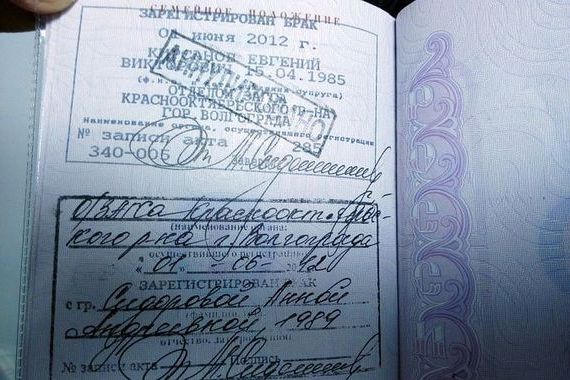 СЕМЕЙНОЕ ПОЛОЖЕНИЕ
ЗАРЕГИСТРИРОВАН БРАК
июня 2012 г.
ЕВГЕНИЙ
15.04.1985
ОТДЕЛОМ ЗАГСА
КРАСНООКТЯБРЬСКОГО Р-НА
ГОР. ВОЛГОГРАДА
Наименование органа, осуществившего регистрацию
№ записи акта 285
340-006
О/ЗАГСа Красноокт.
кого р-на г. Волгограда
(наименование органа,
осуществившего регистрацию)
" 01 " - 06 -
ЗАРЕГИСТРИРОВАН БРАК
с гр. Сидоровой Анной
Андреевной, 1989
отчество, дата рождения)
№ записи акта Подпись